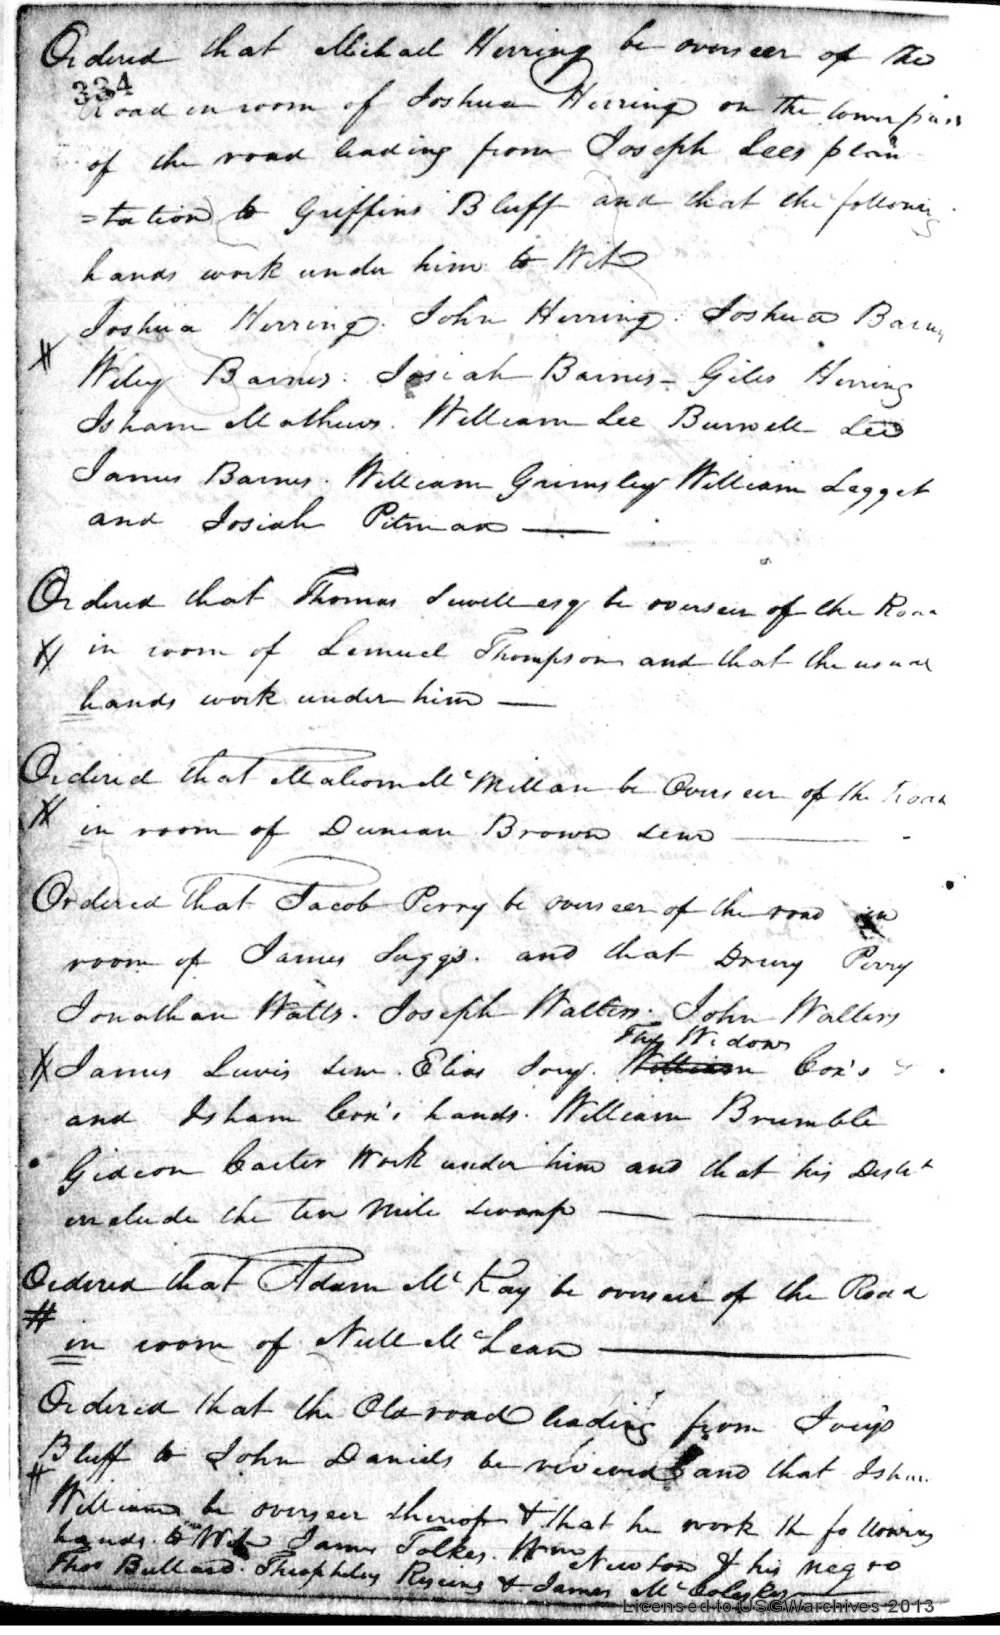 Ordered that Michael Herring be overseer of the
334
Road in room of Joshua Herring on the lower
of the road leading from Joseph Lees plan
=tation to Griffins Bluff and that the following
hands work under him to Wit
Joshua Herring. John Herring. Joshua Barnes
Wiley Barnes. Josiah Barnes - Giles Herring
Isham Mathews. William Lee Burwell Lee
James Barnes. William Grimsley William Legget
and Josiah Pitman
Ordered that Thomas Sewell esq be overseer of the Road
in room of Lemuel Thompson and that the usual
hands work under him
Ordered that Malcom Mc Millan be Overseer of the Road
in room of Duncan Brown Senr
Ordered that Jacob Perry be overseer of the road in
room of James Suggs. and that Drury Perry
Jonathan Watts. Joseph Walters. John Walters
The Widow
James Lewis Senr. Elias Ivey. William Cox's
and Isham Cox's hands. William Brumble
Gideon Carter Work under him and that his Dist
include the ten Mile Swamp
Ordered that Adam Mc Kay be overseer of the Road
in room of Neill Mc Lean
Ordered that the Old road leading from Iveys
Bluff to John Daniels be revived and that Isham
Williams be overseer thereof & that he work the following
hands. to Wit James Folkes. Wm Newton & his negro
Thos Bullard. Theophelus & James Mc
Licensed to USGWarchives 2013